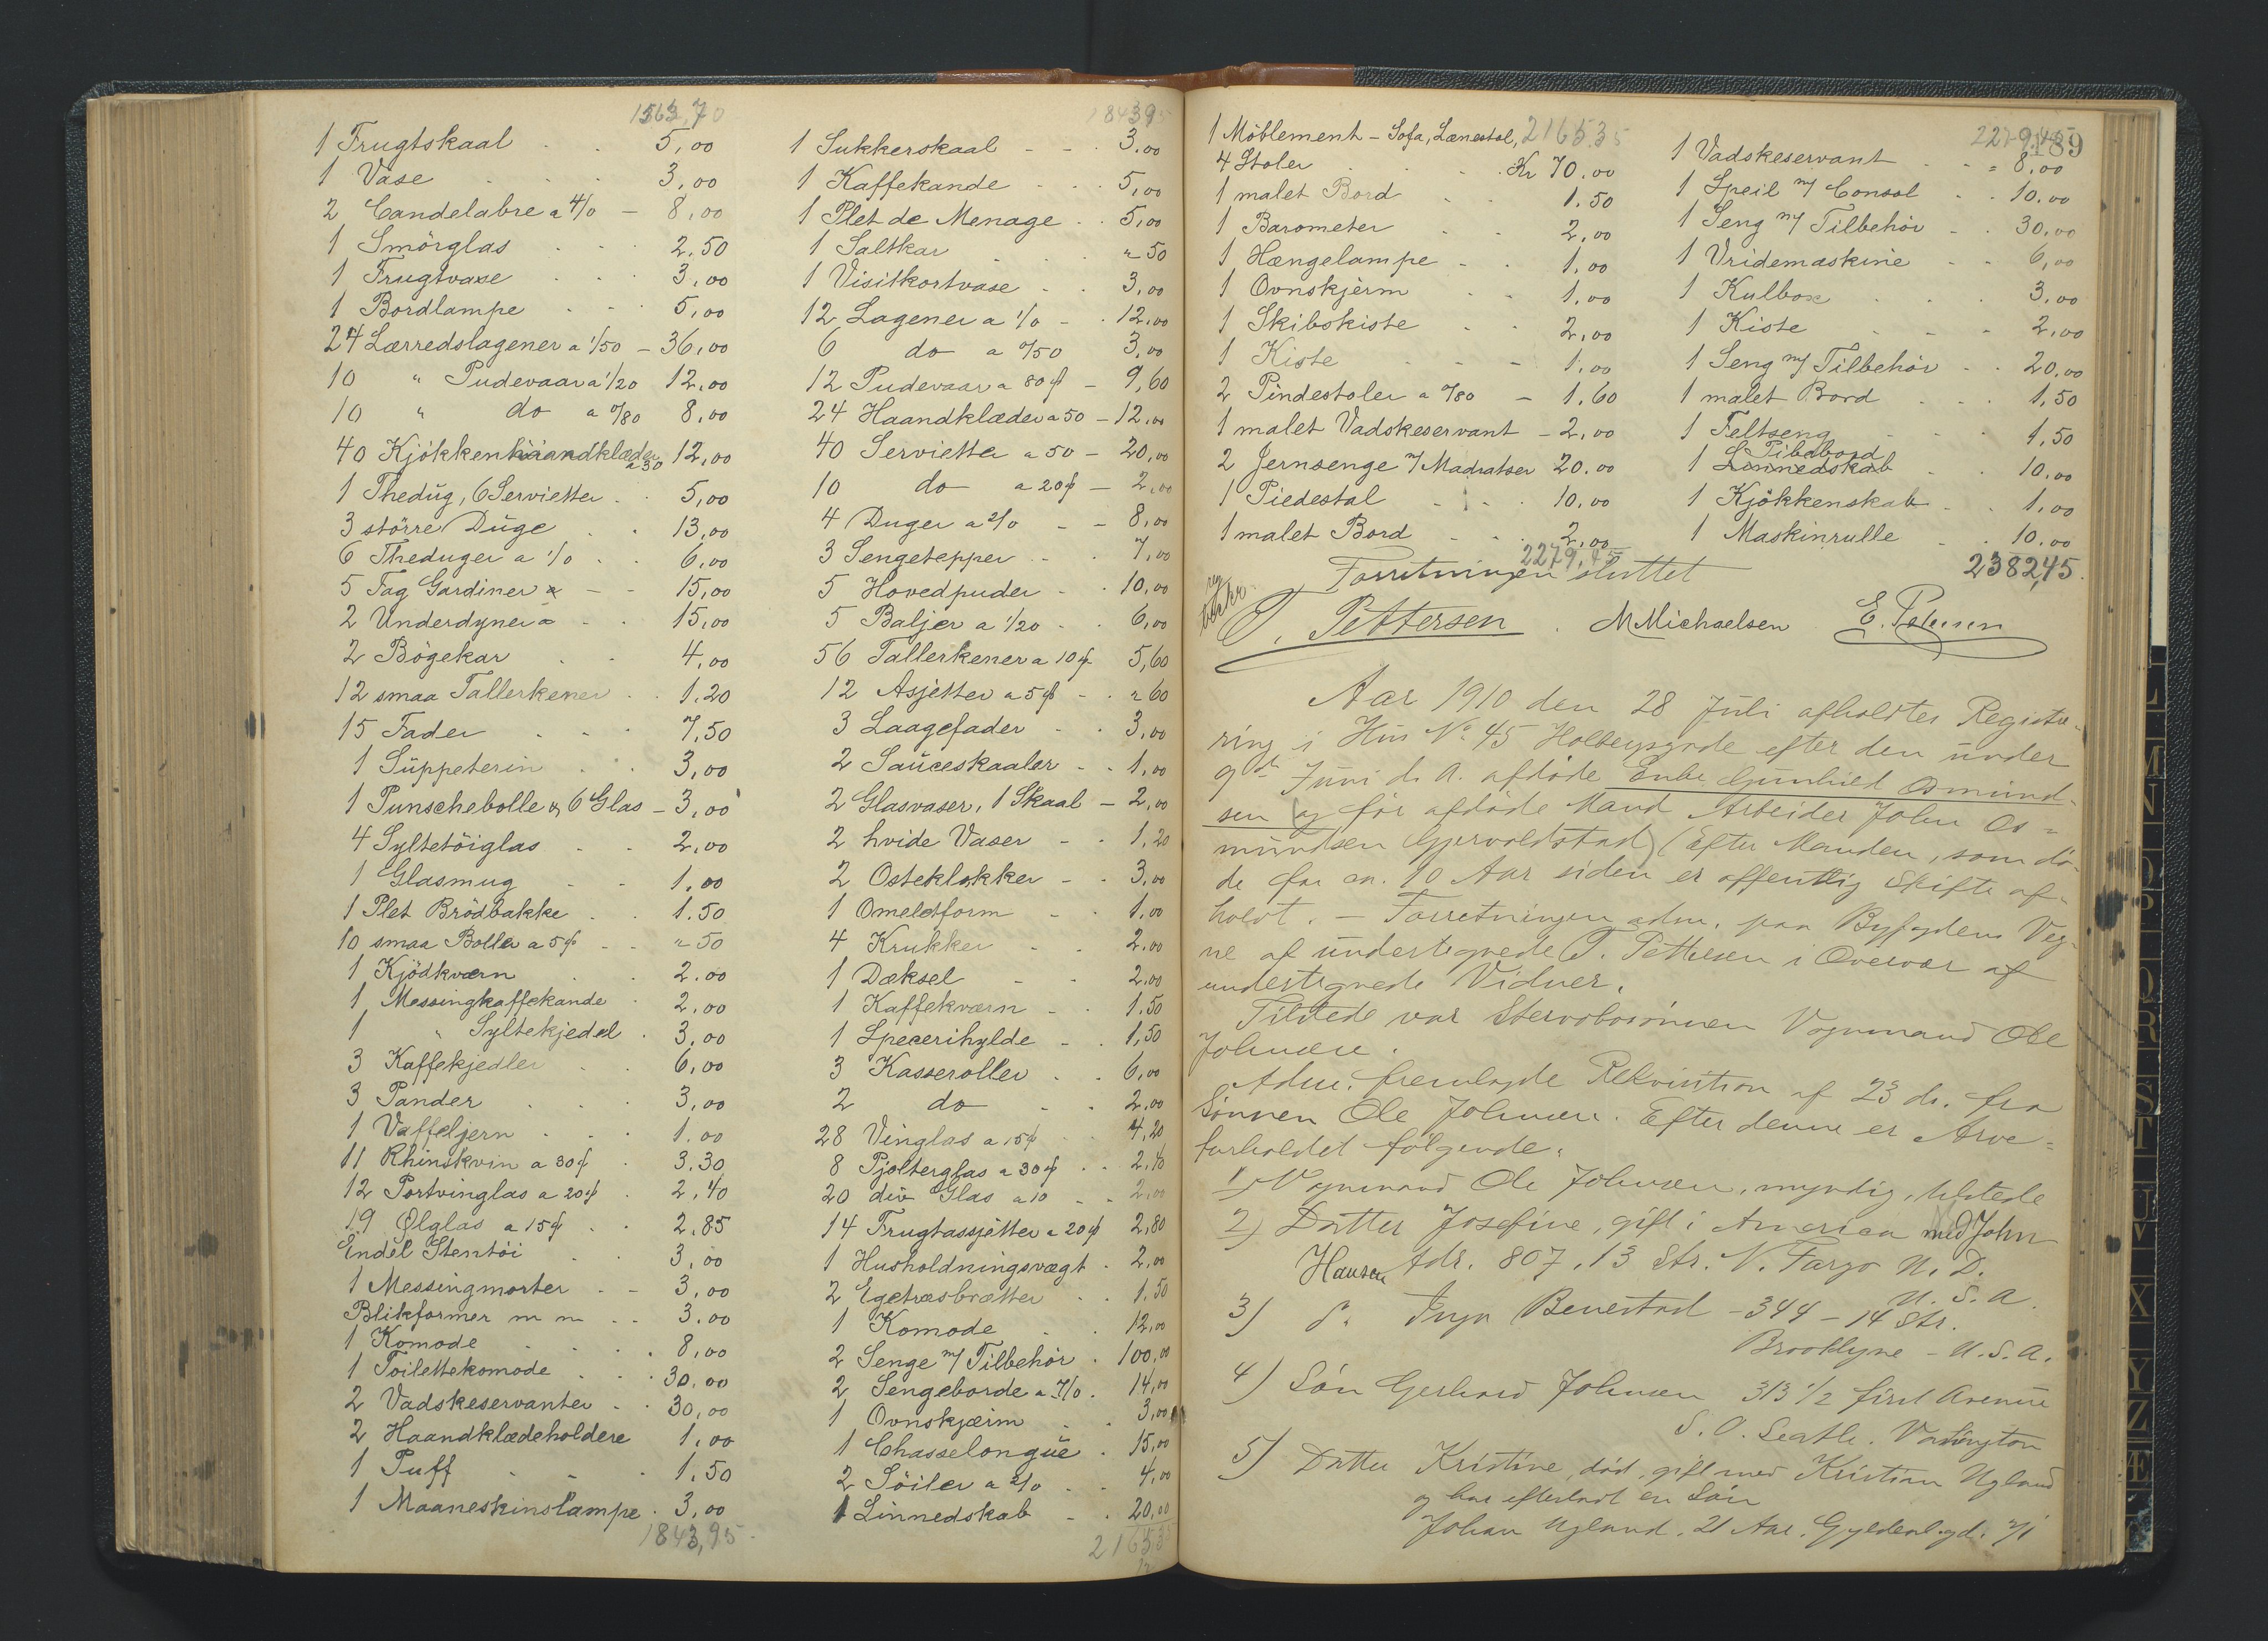 1563,70
1 Frugtskaal . . 5,00
1 Vase . . . 3,00
2 Candelabre a 4/0 – 8,00
1 Smörglas . . . 2.50
1 Frugtvase . . . 3,00
1 Bordlampe . . 5,00
24 Lærredslagener a 1/50 – 36,00
10 " Pudevaar a 1/20 12,00
10 " do a "/80 8,00
40 Kjökkenhaandklæder a 30 12,00
1 Thedug, 6 Servietter . . 5,00
3 större Duge . . 13,00
6 Theduger a 1/0 . . 6,00
5 Fag Gardiner a – – 15,00
2 Underdyner a – . . 15,00
2 Bögekar . . 4,00
12 smaa Tallerkener . . 1.20
15 Fader . . . 7,50
1 Suppeterin . . 3,00
1 Punschebolle & 6 Glas – 3,00
4 Syltetöiglas . . 2,00
1 Glasmug . . 1,00
1 Plet Brödbakke . . 1.50
10 smaa Boller a 5ø . . " 50
1 Kjödkværn . . 2.00
1 Messingkaffekande . 2,00
1 " Syltekjedel . 3,00
3 Kaffekjedler . . 6,00
3 Pander . . . 3,00
1 Vaffeljern . . . 1,00
11 Rhinskvin a 30ø . 3.30
12 Portvinglas a 20ø . 2,40
19 Ølglas a 15ø . . 2.85
Endel Stentöi . . 3,00
1 Messingmorter . – 3,00
Blikformer m m . . 3.00
1 Komode . . . . 8,00
1 Toilettekomode . . . 30,00
2 Vadskeservanter . . 30,00
2 Haandklædeholdere 1,00
1 Puff . . . 1,50
1 Maaneskinslampe . 3,00
1843,95
184395
1 Sukkerskaal – – . 3.00
1 Kaffekande . . . 5,00
1 Plet de Menage . . 5,00
1 Saltkar . . . " 50
1 Visitkortvase . . 3,00
12 Lagener a 1/0 – . 12,00
6 do a "/50 3,00
12 Pudevaar a 80ø – 9,60
24 Haandklæder a 50 – 12,00
40 Servietter a 50 – 20,00
10 do a 20ø – 2,00
4 Duger a 2/0 – – 8,00
3 Sengetepper – . 7,00
5 Hovedpuder – . 10,00
5 Baljer a 1/20 . . 6,00
56 Tallerkener a 10ø 5,60
12 Asjetter a 5ø – . " 60
3 Laagefader . . 3,00
2 Sauceskaaler – . 1,00
2 Glasvaser, 1 Skaal – 2,00
2 hvide Vaser – . 1,20
2 Osteklokker – . 3,00
1 Omeletform – . 1,00
4 Krukker . . 2.00
1 Dæksel – . 2,00
1 Kaffekværn – . 1.50
1 Specerihylde – . 1,50
3 Kasseroller . . 6,00
2 do . . 2,00
28 Vinglas a 15ø . . 4,20
8 Pjolterglas a 30ø . . 2,40
20 div Glas a 10 – – 2,00
14 Frugtassjetter a 20ø 2,80
1 Husholdningsvægt . 2,00
2 Egetræsbrætter . . 1.50
1 Komode . . 12,00
2 Senge m/ Tilbehör . 100,00
2 Sengeborde a 7/0 . 14,00
1 Ovnskjærm . . 3,00
1 Chasselongue . 15,00
2 Söiler a 2/0 . . 4,00
1 Linnedskab – . 20,00
216535
189
1 Möblement – Sofa, Lænestol, 216535
4 Stoler . . . Kr 70.00
1 malet Bord . . 1.50
1 Barometer . . 2,00
1 Hængelampe . . 1,00
1 Ovnskjerm . . 1,00
1 Skibskiste . . 2,00
1 Kiste . . – 1,00
2 Pindestoler a "/80 – 1,60
1 malet Vadskeservant – 2,00
2 Jernsenge m/ Madratser 20.00
1 Piedestal . . . 10,00
1 malet Bord – . . 2,00
2279,45
2279,45
1 Vadskeservant . . 8,00
1 Speil m/ Consol . . 10.00
1 Seng m/ Tilbehör . . 30,00
1 Vridemaskine . . 6,00
1 Kulbox . . . 3,00
1 Kiste . . . 2,00
1 Seng m/ Tilbehör . . 20,00
1 malet Bord . . . 1,50
1 Feltseng . . . 1,50
Pibebord
1 Linnedskab . . 10.00
1 Kjökkenskab . . 1,00
1 Maskinrulle . . 10.00
2382,45.
Forretningen sluttet
T. Pettersen . M Michaelsen E. Petersen
Aar 1910 den 28 Juli afholdtes Registre-
ring i Hus No. 45 Holbergsgade efter den under
9de Juni d. A. afdöde Enke Gunhild Osmund-
sen og för afdöde Mand Arbeider John Os-
mundsen Gjervoldstad) (Efter Manden, som dö-
de for ca. 10 Aar siden er offentlig Skifte af-
holdt. – Forretningen adm. paa Byfogdens Veg-
ne af undertegnede T. Pettersen i Overvær af
undertegnede Vidner.
Tilstede var Stervbosönnen Vognmand Ole
Johnsen.
Adm. fremlagde Rekvisition af 23 ds. fra
Sönnen Ole Johnsen. Efter denne er Arve-
forholdet fölgende:
1) Vognmand Ole Johnsen, myndig, tilstede
2) Datter Josefine, gift i America med John
Hansen Adr. 807, 13 Str. N. Fargo N. D.
U. S. A.
3) do Inga Benestad – 344 – 14 Str.
Brooklyne – U.S.A.
4) Sön Gerhard Johnsen 313 1/2 först Avenue
S. O. Seatle. Vashington
5) Datter Kristine, död, gift med Kristian Ugland
og har efterladt en Sön
Johan Ugland, 21 Aar. Gyldenl.gd.